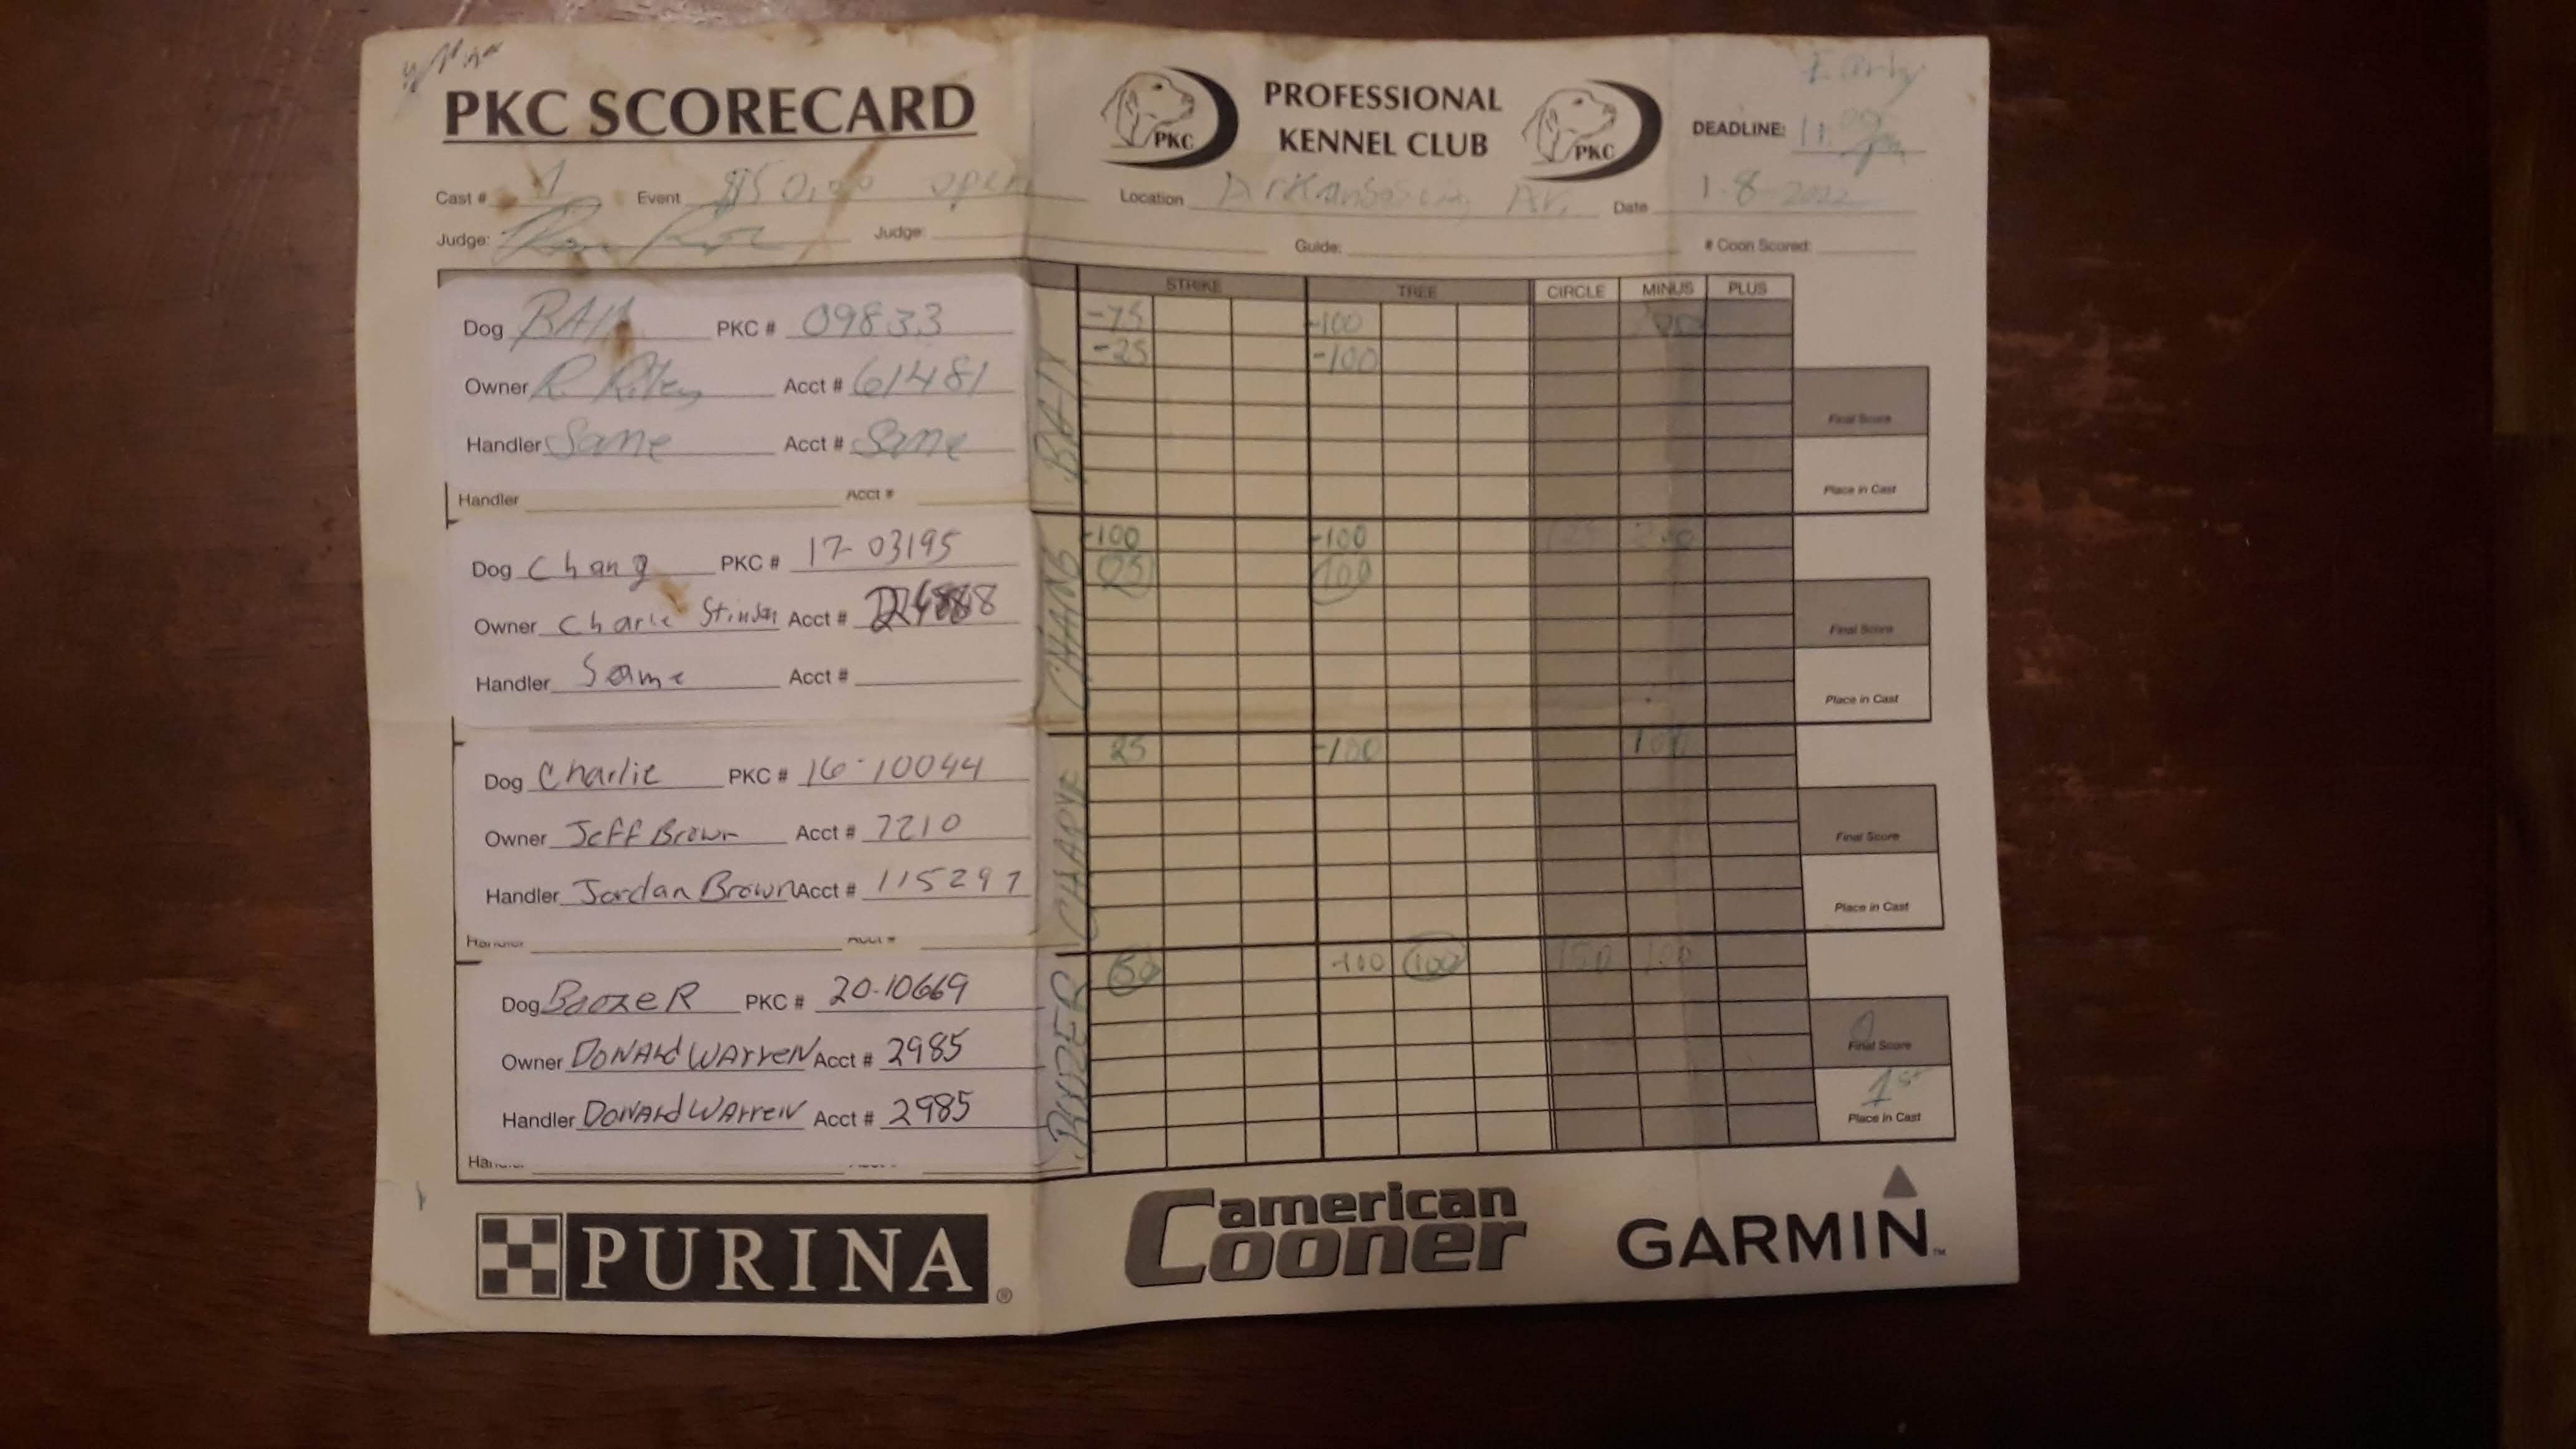 PKC SCORECARD
PKC
PROFESSIONAL
KENNEL CLUB
PKC
Early
DEADLINE: 11:00 pm
Cast # 1 Event $150.00 open Location AR. Date 1-8-2022
Judge: Judge: Guide: # Coon Scored:
STRIKE TREE CIRCLE MINUS PLUS
Dog PKC # 09833
Owner R. Acct # 61481
Handler Same Acct # Same
Handler Acct #
-75 -100
-25 -100
Final Score
Place in Cast
Dog Chang PKC # 17-03195
Owner Charlie Stinson Acct #
Handler Same Acct #
CHANG
-100 -100 125 200
25 100
Final Score
Place in Cast
Dog Charlie PKC # 16-10044
Owner Jeff Brown Acct # 7210
Handler Jordan Brown Acct # 115297
Handler Acct #
25 -100 100
Final Score
Place in Cast
Dog BoozeR PKC # 20-10669
Owner DONALD WARREN Acct # 2985
Handler DONALD WARREN Acct # 2985
50 -100 100 150 100
0
Final Score
1st
Place in Cast
PURINA ®
american Cooner
GARMIN™